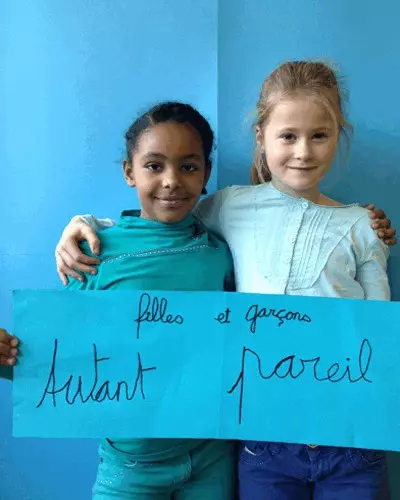 filles et garçons
Autant pareil